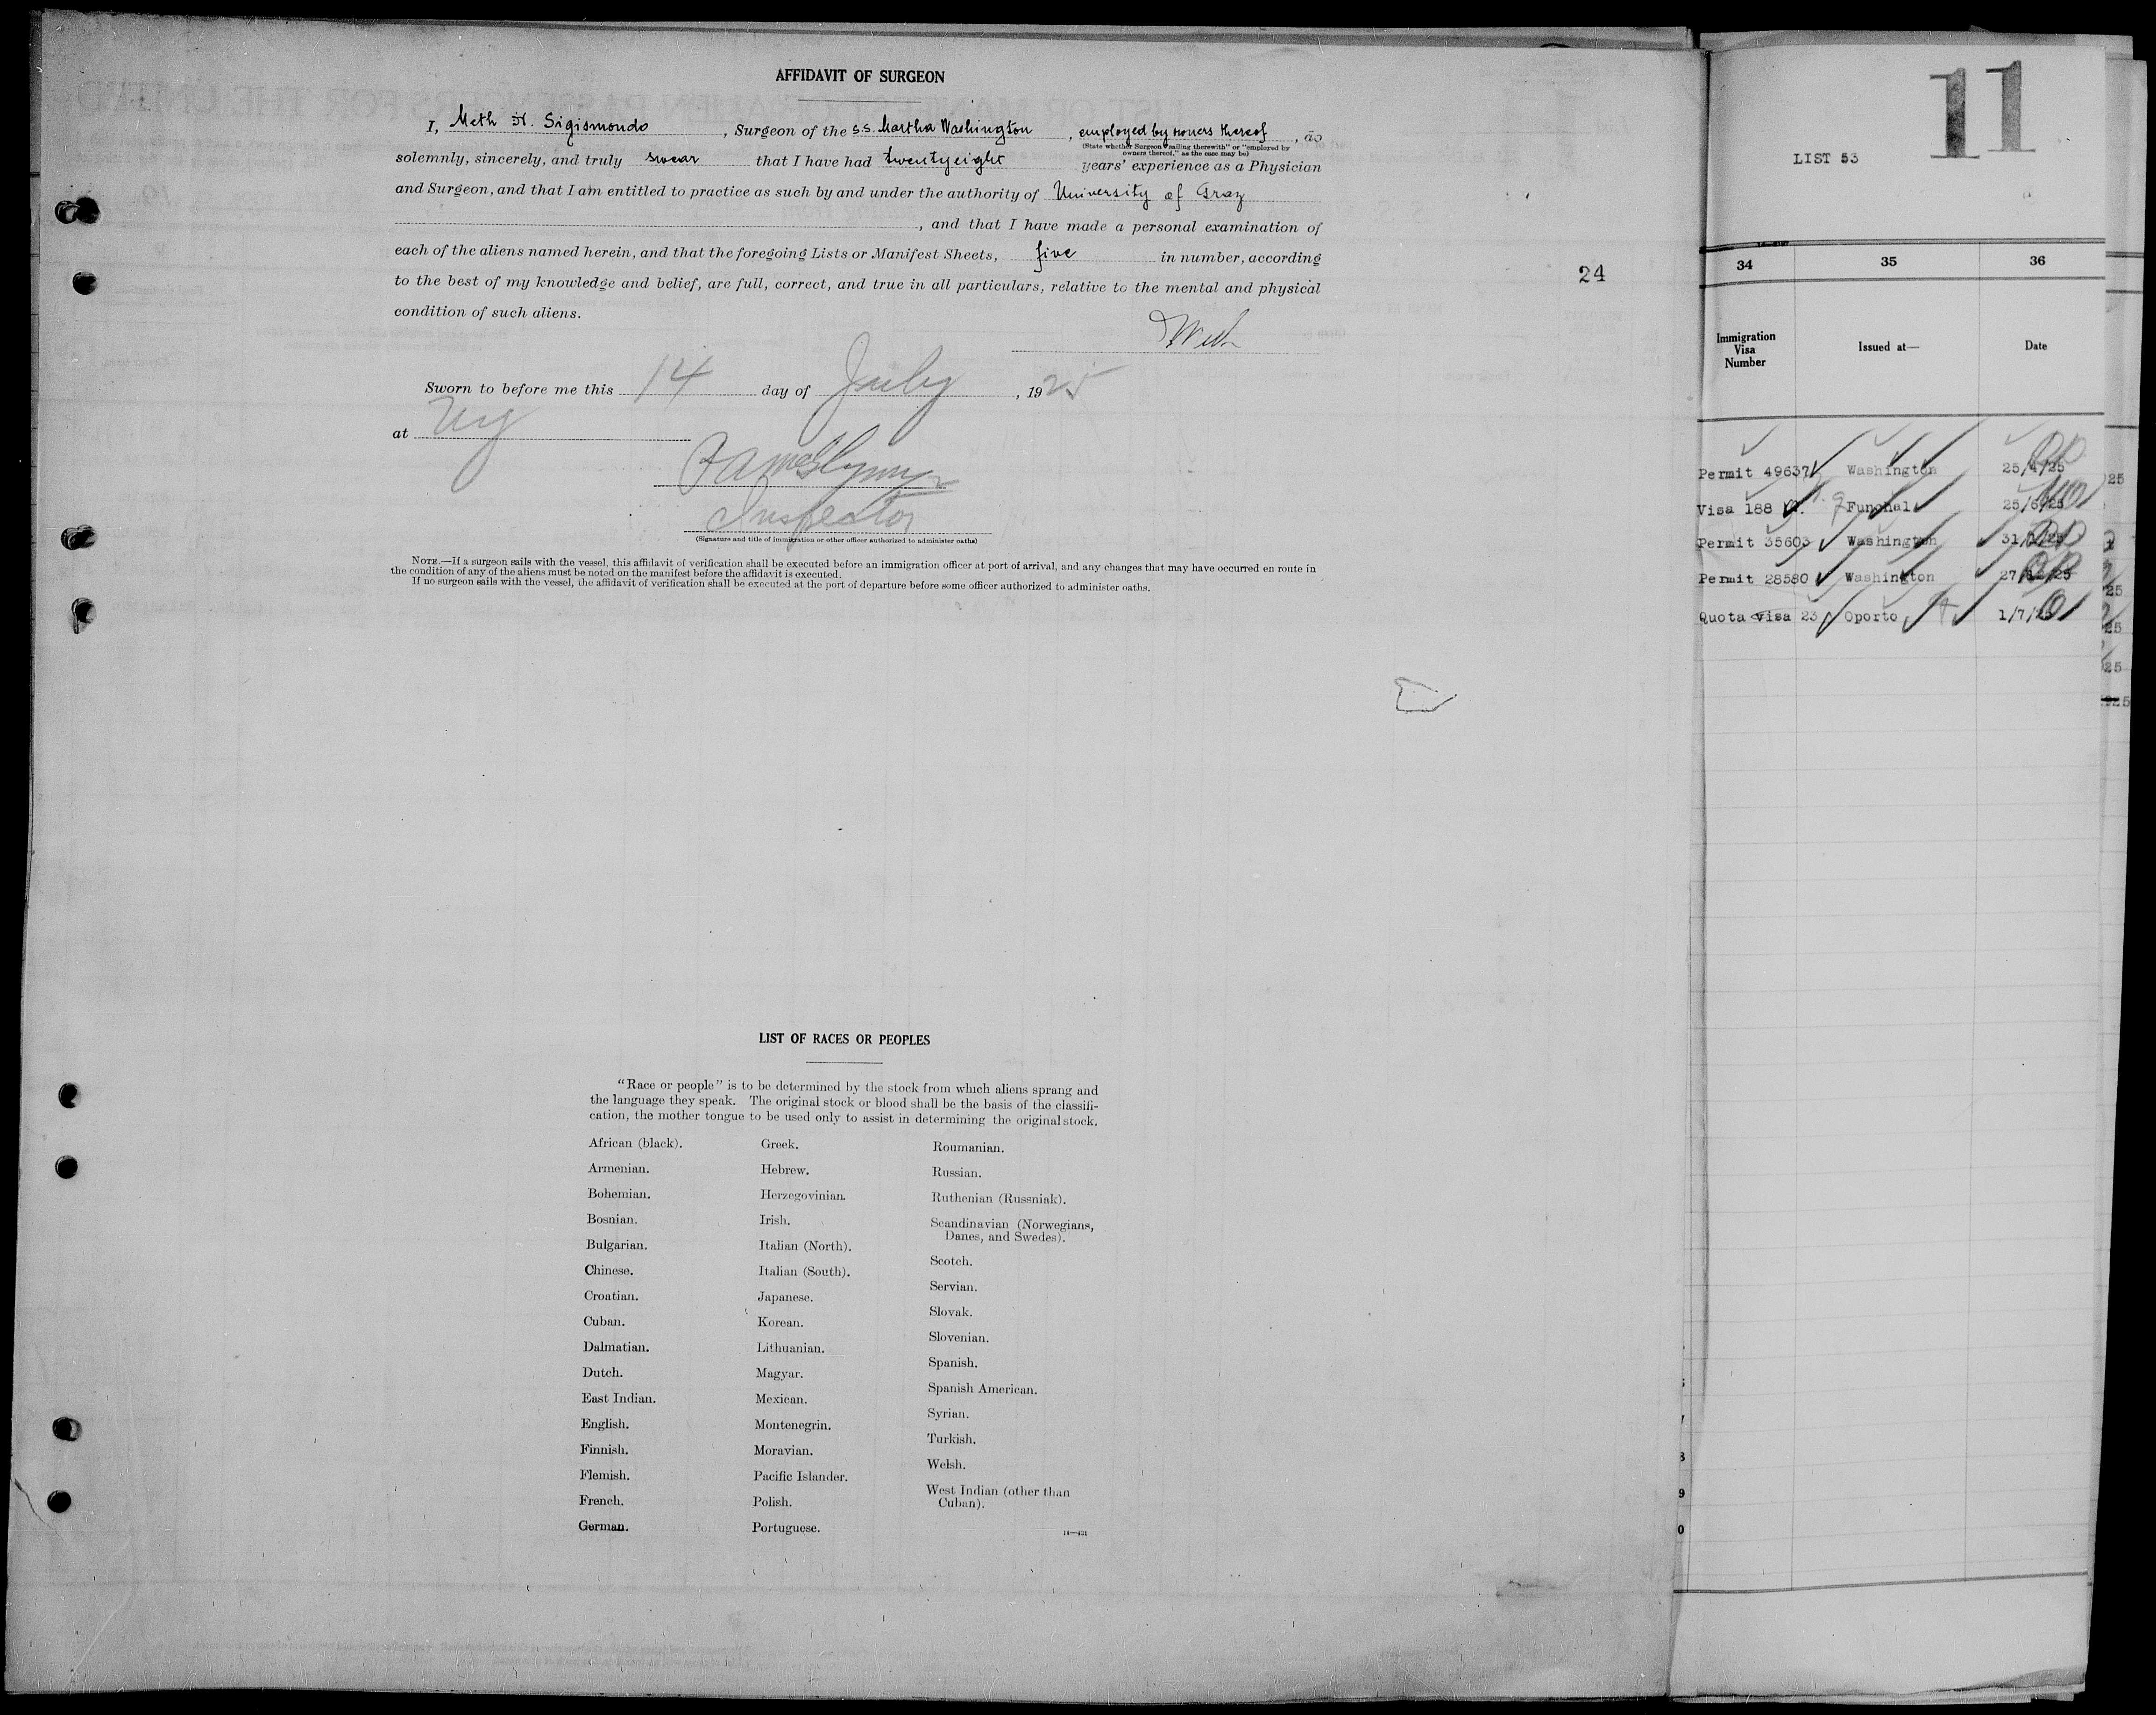 AFFIDAVIT OF SURGEON
I, Meth H. Sigismondo, Surgeon of the S.S. Martha Washington, employed by owners thereof, do
(State whether Surgeon "sailing therewith" or "employed by owners thereof," as the case may be)
solemnly, sincerely, and truly swear that I have had twentyeight years' experience as a Physician
and Surgeon, and that I am entitled to practice as such by and under the authority of University of Graz
, and that I have made a personal examination of
each of the aliens named herein, and that the foregoing Lists or Manifest Sheets, five in number, according
to the best of my knowledge and belief, are full, correct, and true in all particulars, relative to the mental and physical
condition of such aliens.
Meth
Sworn to before me this 14 day of July, 1925
at NY
Inspector
(Signature and title of immigration or other officer authorized to administer oaths)
NOTE.—If a surgeon sails with the vessel, this affidavit of verification shall be executed before an immigration officer at port of arrival, and any changes that may have occurred en route in
the condition of any of the aliens must be noted on the manifest before the affidavit is executed.
If no surgeon sails with the vessel, the affidavit of verification shall be executed at the port of departure before some officer authorized to administer oaths.
24
LIST OF RACES OR PEOPLES
"Race or people" is to be determined by the stock from which aliens sprang and
the language they speak. The original stock or blood shall be the basis of the classifi-
cation, the mother tongue to be used only to assist in determining the original stock.
African (black).
Armenian.
Bohemian.
Bosnian.
Bulgarian.
Chinese.
Croatian.
Cuban.
Dalmatian.
Dutch.
East Indian.
English.
Finnish.
Flemish.
French.
German.
Greek.
Hebrew.
Herzegovinian.
Irish.
Italian (North).
Italian (South).
Japanese.
Korean.
Lithuanian.
Magyar.
Mexican.
Montenegrin.
Moravian.
Pacific Islander.
Polish.
Portuguese.
Roumanian.
Russian.
Ruthenian (Russniak).
Scandinavian (Norwegians,
Danes, and Swedes).
Scotch.
Servian.
Slovak.
Slovenian.
Spanish.
Spanish American.
Syrian.
Turkish.
Welsh.
West Indian (other than
Cuban).
LIST 53
11
34 35 36
Immigration
Visa
Number
Issued at—
Date
Permit 49637 Washington 25/4/25
Visa 188 Funchal 25/6/25
Permit 35603 Washington
Permit 28580 Washington
Quota visa 23 Oporto 1/7/25